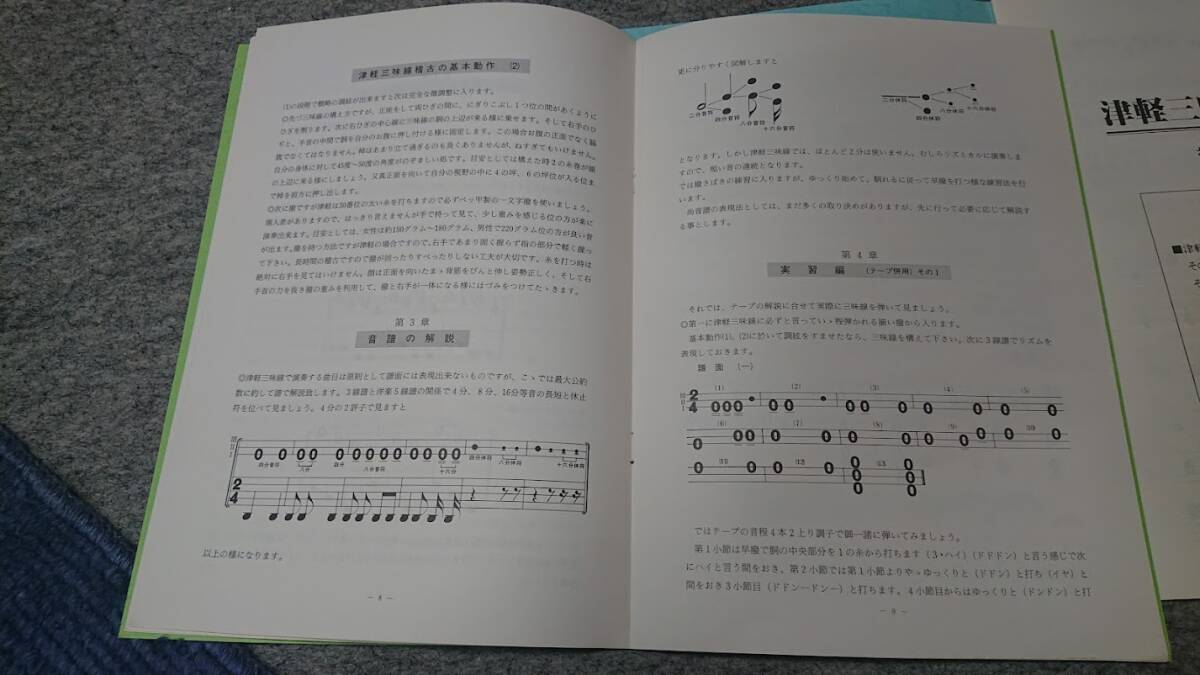 津軽三味線稽古の基本動作 (2)
(1)の段階で概略の調絃が出来ますと次は完全な微調整に入ります。
◎先づ三味線の構え方ですが、正座をして両ひざの間に、にぎりこぶし1つ位の間があくように
ひざを割ります。次に右ひざの中心線に三味線の胴の上辺が来る様に乗せます。そして右手のひ
じと、手首の中間で胴を自分のお腹に押し付ける様に固定します。この場合お腹の正面でなく脇
腹でなくてはなりません。棹はあまり立て過ぎるのも良くありませんが、ねすぎてもいけません。
自分の身体に対して45度〜50度の角度がのぞましい処です。目安としては構えた時2の糸巻が眼
の上辺に来る様にしましょう。又真正面を向いて自分の視野の中に4の坪、6の坪位が入る位ま
で棹を前方に押し出します。
◎次に撥ですが津軽は30番位の太い糸を打ちますので必ずベッ甲製の一文字撥を使いましょう。
個人差がありますので、はっきり言えませんが手で持って見て、少し重みを感じる位の方が楽に
演奏出来ます。目安としては、女性は約150グラム〜180グラム、男性で220グラム位の方が良い音
が出ます。撥を持つ方法ですが津軽の場合ですので、右手であまり固く握らず指の部分で軽く握っ
て下さい。長時間の稽古ですので撥が回ったりすべったりしない工夫が大切です。糸を打つ時は
絶対に右手を見てはいけません。顔は正面を向いたまゝ背筋をぴんと伸し姿勢正しく、そして右
手首の力を抜き撥の重みを利用して、撥と右手が一体になる様にはづみをつけてたゝきます。
第3章
音譜の解説
◎津軽三味線で演奏する曲目は原則として譜面には表現出来ないものですが、こゝでは最大公約
数に約して譜で解説致します。3線譜と洋楽5線譜の関係で4分、8分、16分等音の長短と休止
符を位べて見ましょう。4分の2評子で見ますと
III
II
I
0 0 00 0 0000 0000
四分音符 八分 四分 八分音符 十六分 四分休符 八分休符 十六分休符
2
4
以上の様になります。
— 8 —
更に分りやすく図解しますと
二分音符 四分音符 八分音符 十六分音符
二分休符 四分休符 八分休符 十六分休符
となります。しかし津軽三味線では、ほとんど2分は使いません。むしろリズミカルに演奏しま
すので、短い音の連続となります。
では撥さばきの練習に入りますが、ゆっくり始めて、馴れるに従って早撥を打つ様な練習法を行
います。
尚音譜の表現法としては、まだ多くの取り決めがありますが、先に行って必要に応じて解説す
る事とします。
第4章
実習編 (テープ併用)その1
それでは、テープの解説に合せて実際に三味線を弾いて見ましょう。
◎第一に津軽三味線に必ずと言っていゝ程弾かれる揃い撥から入ります。
基本動作(1)、(2)に於いて調絃をすませたなら、三味線を構えて下さい。次に3線譜でリズムを
表現しておきます。
譜面 (一)
(1) (2) (3) (4) (5)
III
II
I
2
4
000 00 00 0 0 0 0
(6) (7) (8) (9) 10
0 00 0 0 0 0 0 0 0 0
11 12 13
0 0 0 0 0 0
0 0
0 0
ではテープの音程4本2上り調子で御一諸に弾いてみましょう。
第1小節は早撥で胴の中央部分を1の糸から打ちます(3・ハイ)(ドドドン)と言う感じで次
にハイと言う間をおき、第2小節では第1小節よりやゝゆっくりと(ドドン)と打ち(イヤ)と
間をおき3小節目(ドドンードンー)と打ちます。4小節目からはゆっくりと(ドンドン)と打
— 9 —
津軽三
■津軽
その
そ